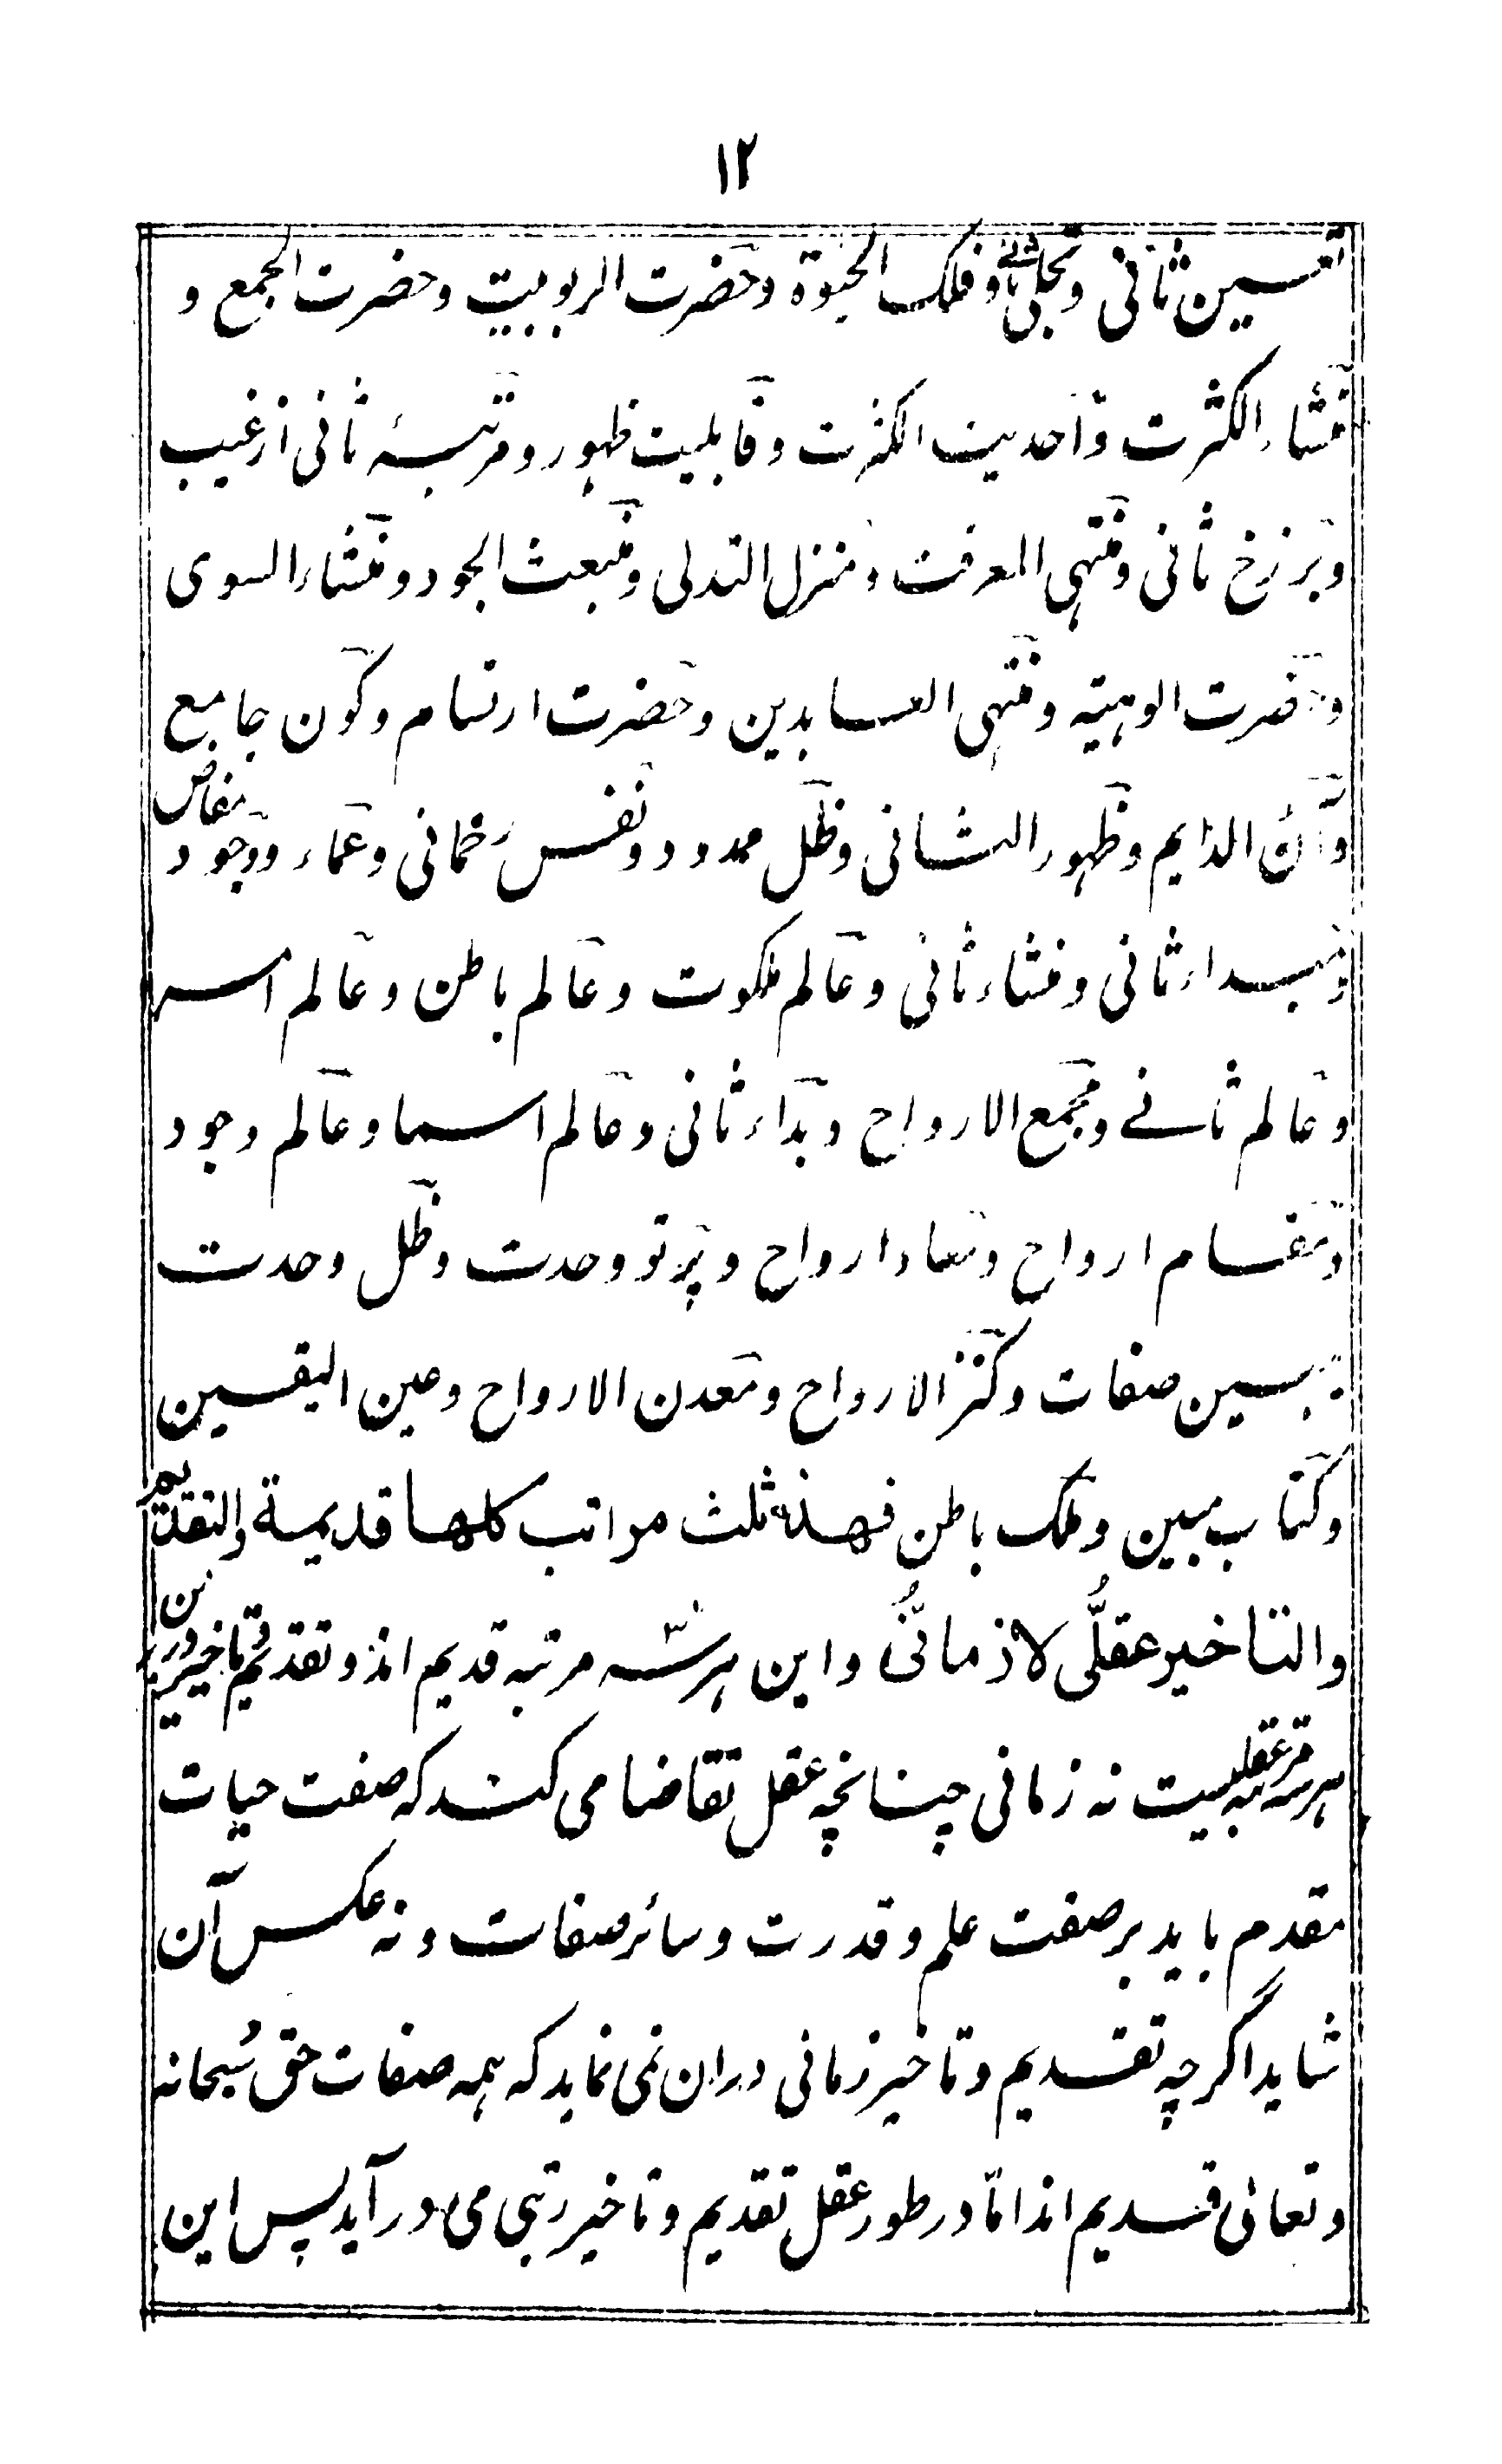 ۱۲
تعین ثانی و تجلی ثانی و فلک الحیوة و حضرت الربوبیت و حضرت الجمع و
منشاء الکثرت و احدیت الکثرت و قابلیت ظهور و مرتبهٔ ثانی از غیب
و برزخ ثانی و منتهی المعرفت و منزل التدلی و منبعث الجود و منشاء السوی
و حضرت الوهیته و منتهی العابدین و حضرت ارتسام و کون جامع
و آن الدایم و ظهور الثانی و ظل ممدود و نفس رحمانی و عماء و وجود مفاض
و مبداء ثانی و منشاء ثانی و عالم ملکوت و عالم باطن و عالم امر
و عالم ثانے و مجمع الارواح و بداء ثانی و عالم اسما و عالم وجود
و مقام ارواح و معاد ارواح و پرتو وحدت و ظل وحدت
صفات و کنز الارواح و معدن الارواح و عین الیقین
و کتاب مبین و ملک باطن فهذه ثلث مراتب کلها قدیمة والتقدیم
والتاخیر عقلیُّ لا زمانیُّ و این هر سه مرتبه قدیم اند و تقدیم و تاخیر درین
هر سه مرتبه عقلیست نه زمانی چنانچه عقل تقاضا می کند که صفت حیات
مقدم باید بر صفت علم و قدرت و سائر صفات و نه عکس آن
شاید اگرچه تقدیم و تاخیر زمانی دران نمی نماید که همه صفات حق سُبحانه
و تعالی قدیم اند امّا در طور عقل تقدیم و تاخیر رتبی می در آید پس این